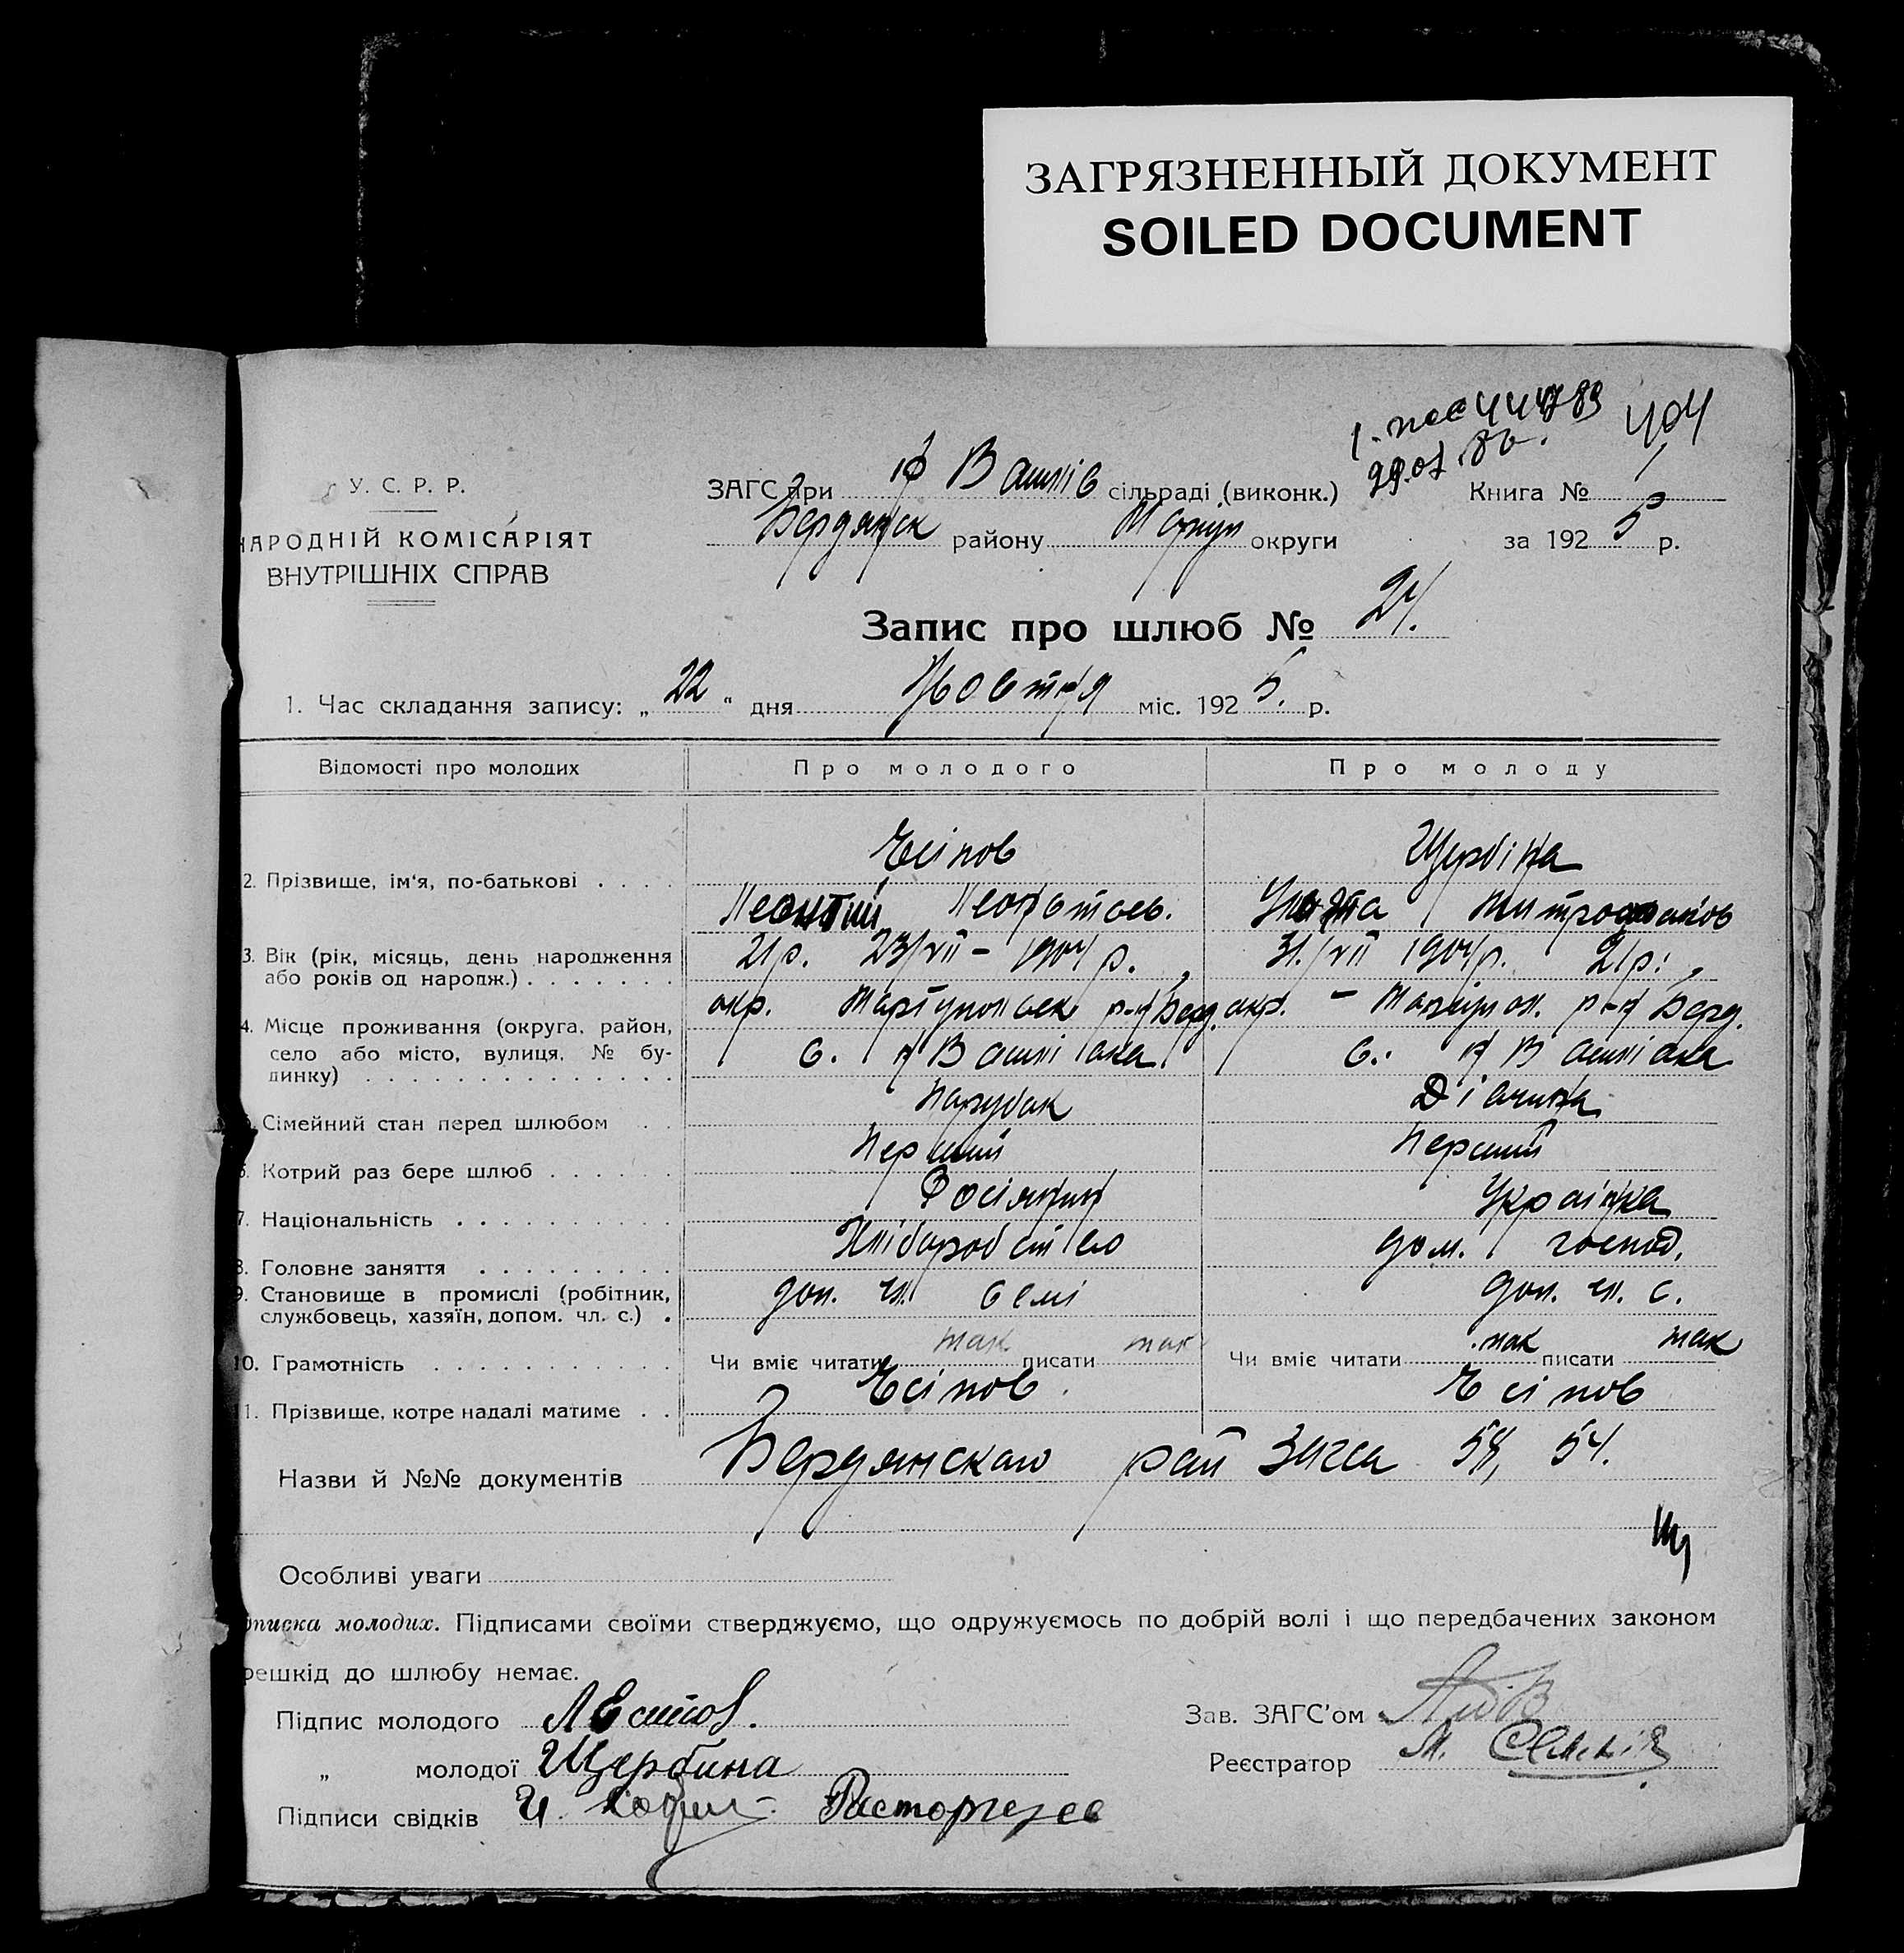 ЗАГРЯЗНЕННЫЙ ДОКУМЕНТ
SOILED DOCUMENT
404
У. С. Р. Р.
НАРОДНІЙ КОМІСАРІЯТ
ВНУТРІШНІХ СПРАВ
ЗАГС при сільраді (виконк.)
Книга № 1
Бердянск району Маріуп округи
за 1925 р.
Запис про шлюб № 24.
1. Час складання запису: „ 22 “ дня Жовтня міс. 1925. р.
Відомості про молодих
Про молодого
Про молоду
2. Прізвище, ім'я, по-батькові
Есіпов
Щербіна
Леонтий
3. Вік (рік, місяць, день народження або років од народж.)
21 р. 23/VII - 1904 р.
31/VII 1904 р. 21 р.
4. Місце проживання (округа, район, село або місто, вулиця, № будинку)
окр. Маріупольск р-н Берд.
окр. - Маріупол. р-н Берд.
Сімейний стан перед шлюбом
Парубак
Дівчина
Котрий раз бере шлюб
Перший
Перший
7. Національність
Росіянин
Украінка
8. Головне заняття
Хліборобство
дом. господ.
9. Становище в промислі (робітник, службовець, хазяїн, допом. чл. с.)
доп. чл. семі
доп. чл. с.
10. Грамотність
Чи вміє читати так писати так
Чи вміє читати так писати так
11. Прізвище, котре надалі матиме
Есіпов
Есіпов
Назви й №№ документів Бердянского рай Загса 58, 54.
Особливі уваги
писка молодих. Підписами своїми стверджуємо, що одружуємось по добрій волі і що передбачених законом
решкід до шлюбу немає.
Підпис молодого Л Есипов.
Зав. ЗАГС'ом
„ молодої Щербина
Реєстратор М.
Підписи свідків И. Расторгуев